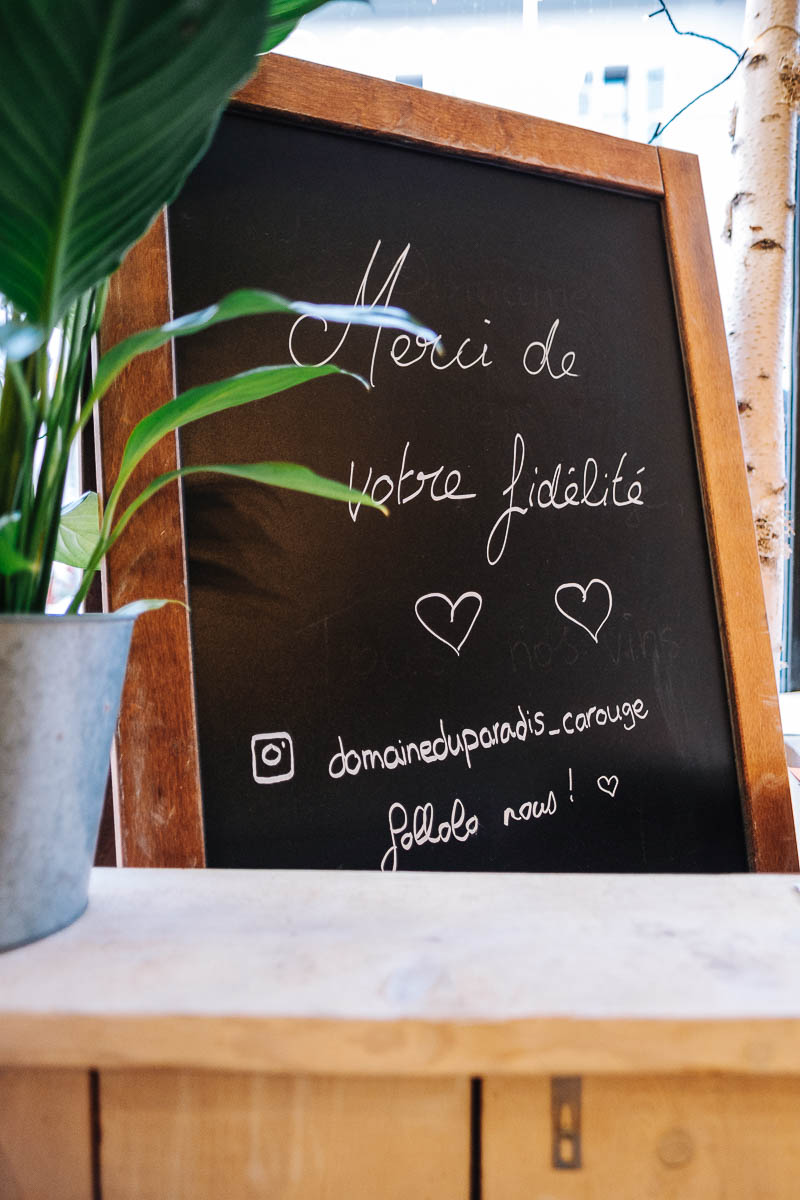 Merci de
votre fidélité
domaineduparadis_carouge
follolo nous!